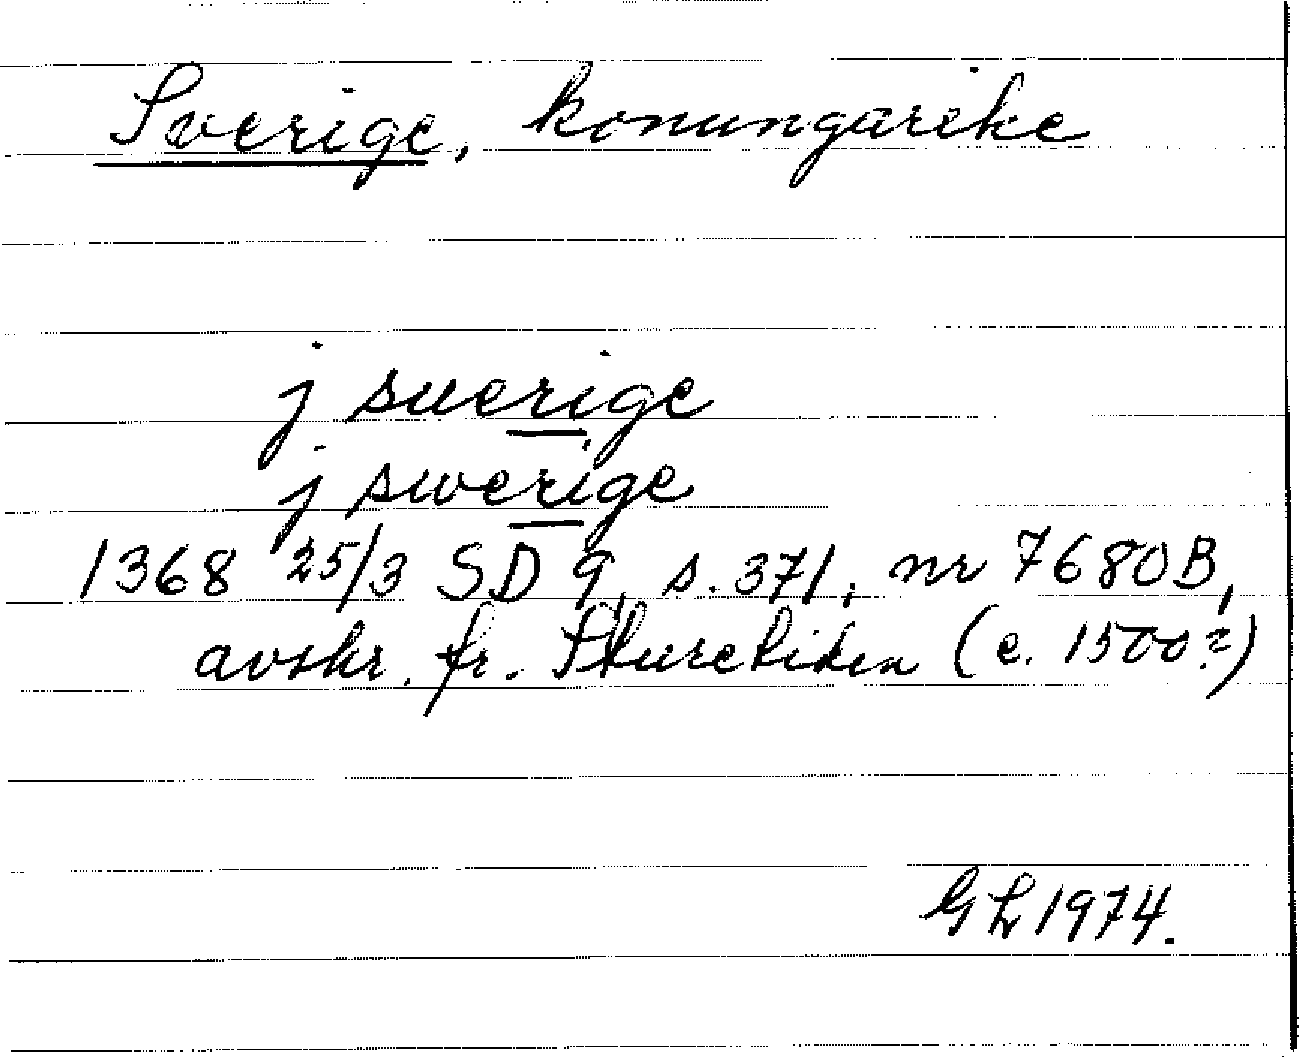 Sverige, konungarike
j suerige
j swerige
1368 25/3 SD 9, s. 371, nr 7680B,
avskr. fr. Sturetiden (c. 1500?)
GL 1974.